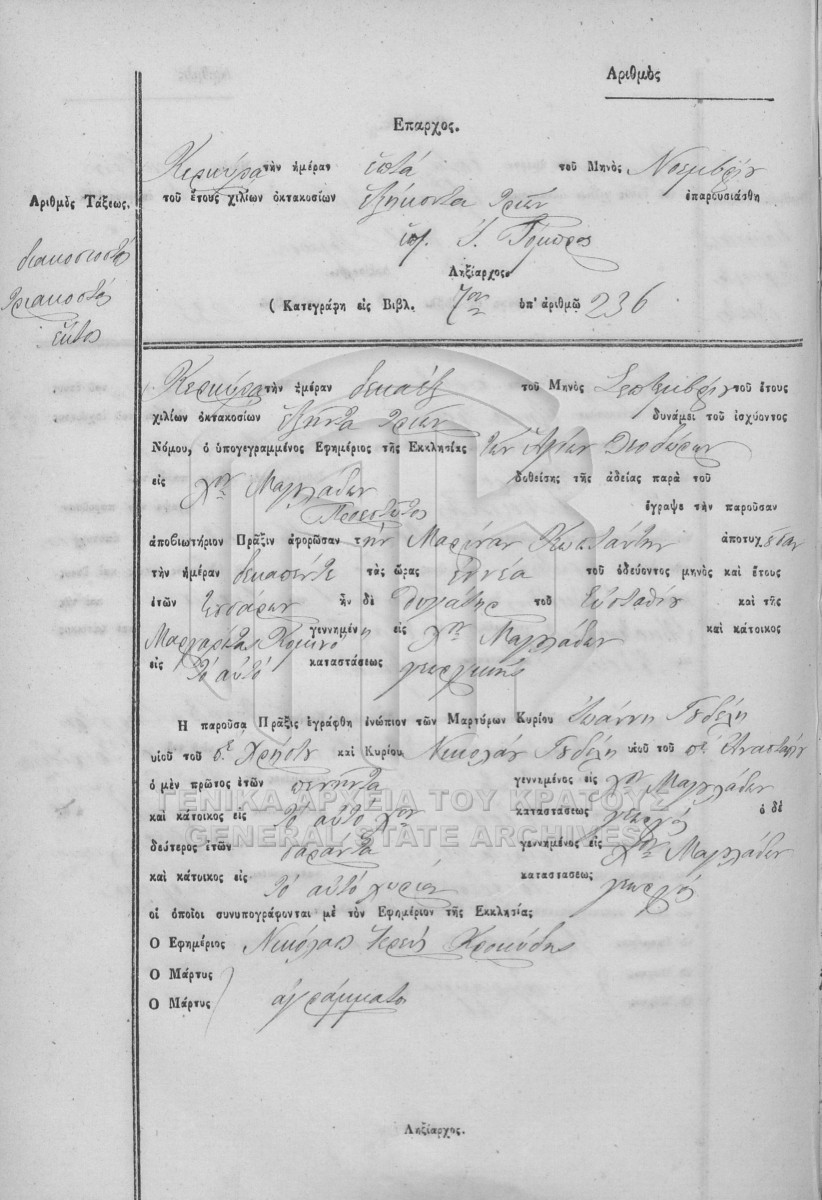 Αριθμὸς
Επαρχος.
Κερκύρα τὴν ἡμέραν ἑπτά τοῦ Μηνὸς Νοεμβρίου
Αριθμὸς Τάξεως. τοῦ ἔτους χιλίων ὀκτακοσίων ἑξήκοντα τριῶν ἐπαρουσιάσθη
διακοσιοστός
τριακοστός
ἕκτος
Ληξίαρχος.
( Κατεγράφη εἰς Βιβλ. 7ον ὑπ' ἀριθμῷ 236
Κερκύρα τὴν ἡμέραν δεκαέξ τοῦ Μηνὸς Σεπτεμβρίου τοῦ ἔτους
χιλίων ὀκτακοσίων ἑξῆντα τριῶν δυνάμει τοῦ ἰσχύοντος
Νόμου, ὁ ὑπογεγραμμένος Εφημέριος τῆς Εκκλησίας τῶν Ἁγίων Θεοδώρων
εἰς χον Μαγλάδων δοθείσης τῆς ἀδείας παρὰ τοῦ
Προεστῶτος ἔγραψε τὴν παροῦσαν
ἀποβιωτήριον Πρᾶξιν ἀφορῶσαν τὴν Μαρίναν ἀποτυχοῦσαν
τὴν ἡμέραν δεκαπέντε τὰς ὥρας ἐννέα τοῦ ὁδεύοντος μηνὸς καὶ ἔτους
ἐτῶν τεσσάρων ἦν δὲ θυγάτηρ τοῦ Εὐσταθίου καὶ τῆς
Μαργαρίτας γεννημένη εἰς χον Μαγλάδων καὶ κάτοικος
εἰς τὸ αὐτό καταστάσεως γεωργικῆς
Η παροῦσα Πρᾶξις ἐγράφθη ἐνώπιον τῶν Μαρτύρων Κυρίου Ἰωάννη Γεδέλη
υἱοῦ τοῦ π Χρήστου καὶ Κυρίου Νικολάου Γεδέλη υἱοῦ τοῦ π Ἀναστασίου
ὁ μὲν πρῶτος ἐτῶν πενῆντα γεννημένος εἰς χον Μαγλάδων
καὶ κάτοικος εἰς τὸ αὐτό χον καταστάσεως γεωργός ὁ δὲ
δεύτερος ἐτῶν σαράντα γεννημένος εἰς χον Μαγλάδων
καὶ κάτοικος εἰς τὸ αὐτό χωρίον καταστασεως γεωργός
οἱ ὁποῖοι συνυπογράφονται μὲ τὸν Εφημέριον τῆς Εκκλησίας
Ο Εφημέριος Νικόλαος Ἱερεύς
Ο Μάρτυς
Ο Μάρτυς ἀγράμματοι
Ληξίαρχος.
ΓΕΝΙΚΑ ΑΡΧΕΙΑ ΤΟΥ ΚΡΑΤΟΥΣ
GENERAL STATE ARCHIVES